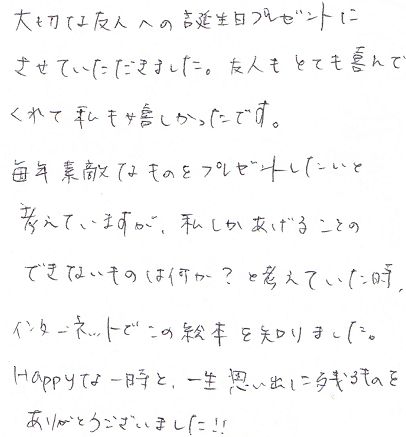 大切な友人への誕生日プレゼントに
させていただきました。友人もとても喜んで
くれて私も嬉しかったです。
毎年素敵なものをプレゼントしたいと
考えていますが、私しかあげることの
できないものは何か？と考えていた時、
インターネットでこの絵本を知りました。
Happyな一時と、一生思い出に残るものを
ありがとうございました!!